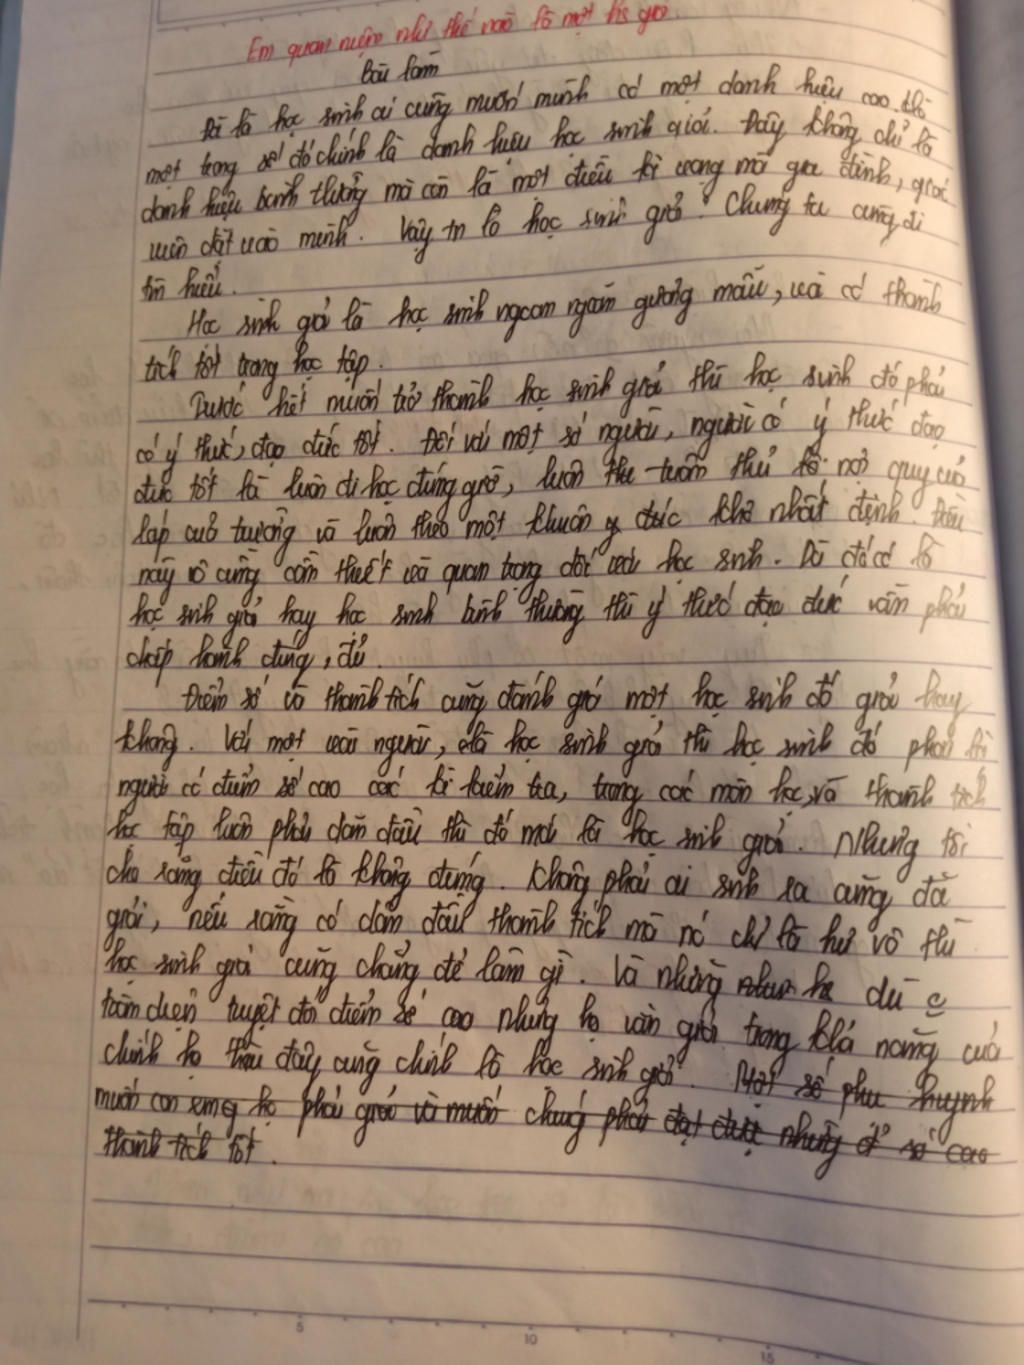 Em quan niệm như thế nào là một hs giỏi.
Bài làm
Đã là học sinh ai cũng muốn mình có một danh hiệu cao. thì
một trong số đó chính là danh hiệu học sinh giỏi. Đây không chỉ là
danh hiệu bình thường mà còn là một điều kì vọng mà gia đình,
luôn đặt vào mình. Vậy tn là học sinh giỏi? Chúng ta cùng đi
tìm hiểu.
Học sinh giỏi là học sinh ngoan ngoãn gương mẫu, và có thành
tích tốt trong học tập.
Trước hết muốn trở thành học sinh giỏi thì học sinh đó phải
có ý thức, đạo đức tốt. Đối với một số người, người có ý thức đạo
đức tốt là luôn đi học đúng giờ, luôn tuân thủ nội quy của
lớp của trường và luôn theo một khuôn nhất định. Điều
này vô cùng cần thiết và quan trọng đối với học sinh. Dù đó có là
học sinh giỏi hay học sinh bình thường thì ý thức đạo đức vẫn phải
chấp hành đúng, đủ.
Điểm số và thành tích cũng đánh giá một học sinh đó giỏi hay
không. Với một vài người, đã học sinh giỏi thì học sinh đó phải là
người có điểm số cao các kì kiểm tra, trong các môn học, và thành tích
học tập luôn phải dẫn đầu thì đó mới là học sinh giỏi. Nhưng tôi
cho rằng điều đó là không đúng. Không phải ai sinh ra cũng đã
giỏi, nếu rằng có dẫn đầu thành tích mà nó chỉ là hư vô thì
học sinh giỏi cũng chẳng để làm gì. Và những dù
toàn diện tuyệt đối điểm số cao nhưng họ vẫn giỏi trong khả năng của
chính họ thì đây cũng chính là học sinh giỏi. Một số phụ huynh
muốn con em họ phải giỏi và muốn chúng phải đạt được những số cao
thành tích tốt.